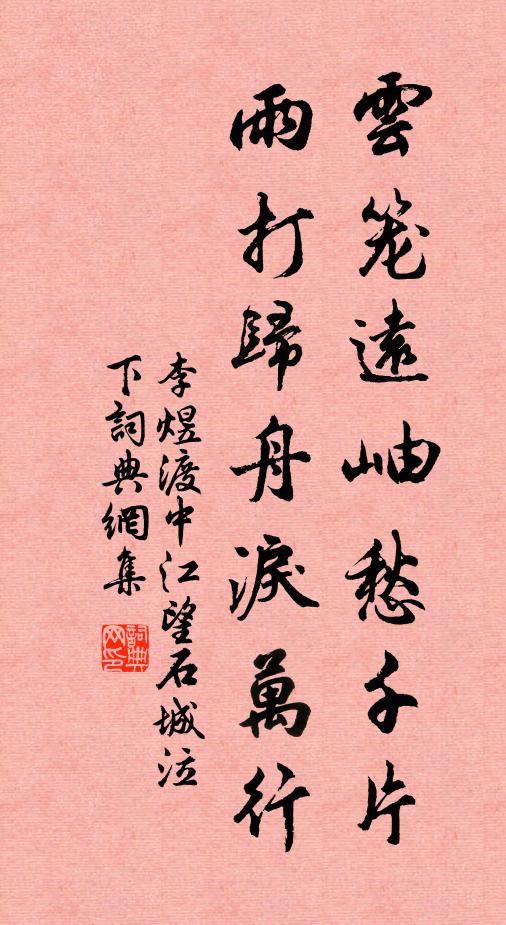 雲笼遠岫愁千片
雨打歸舟淚萬行
李煜渡中江望石城泣
下詞典網集
詞典
网印